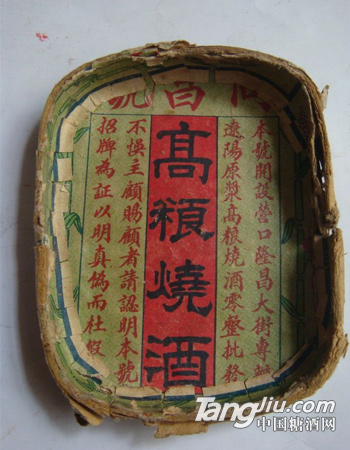 酒百號
高粮燒酒
本號開設營口隆昌大街專
遼陽原漿高粮燒酒零整批發
不悞主顧賜顧者請認明本號
招牌為証以明真偽而杜假
TangJiu.com
中国糖酒网